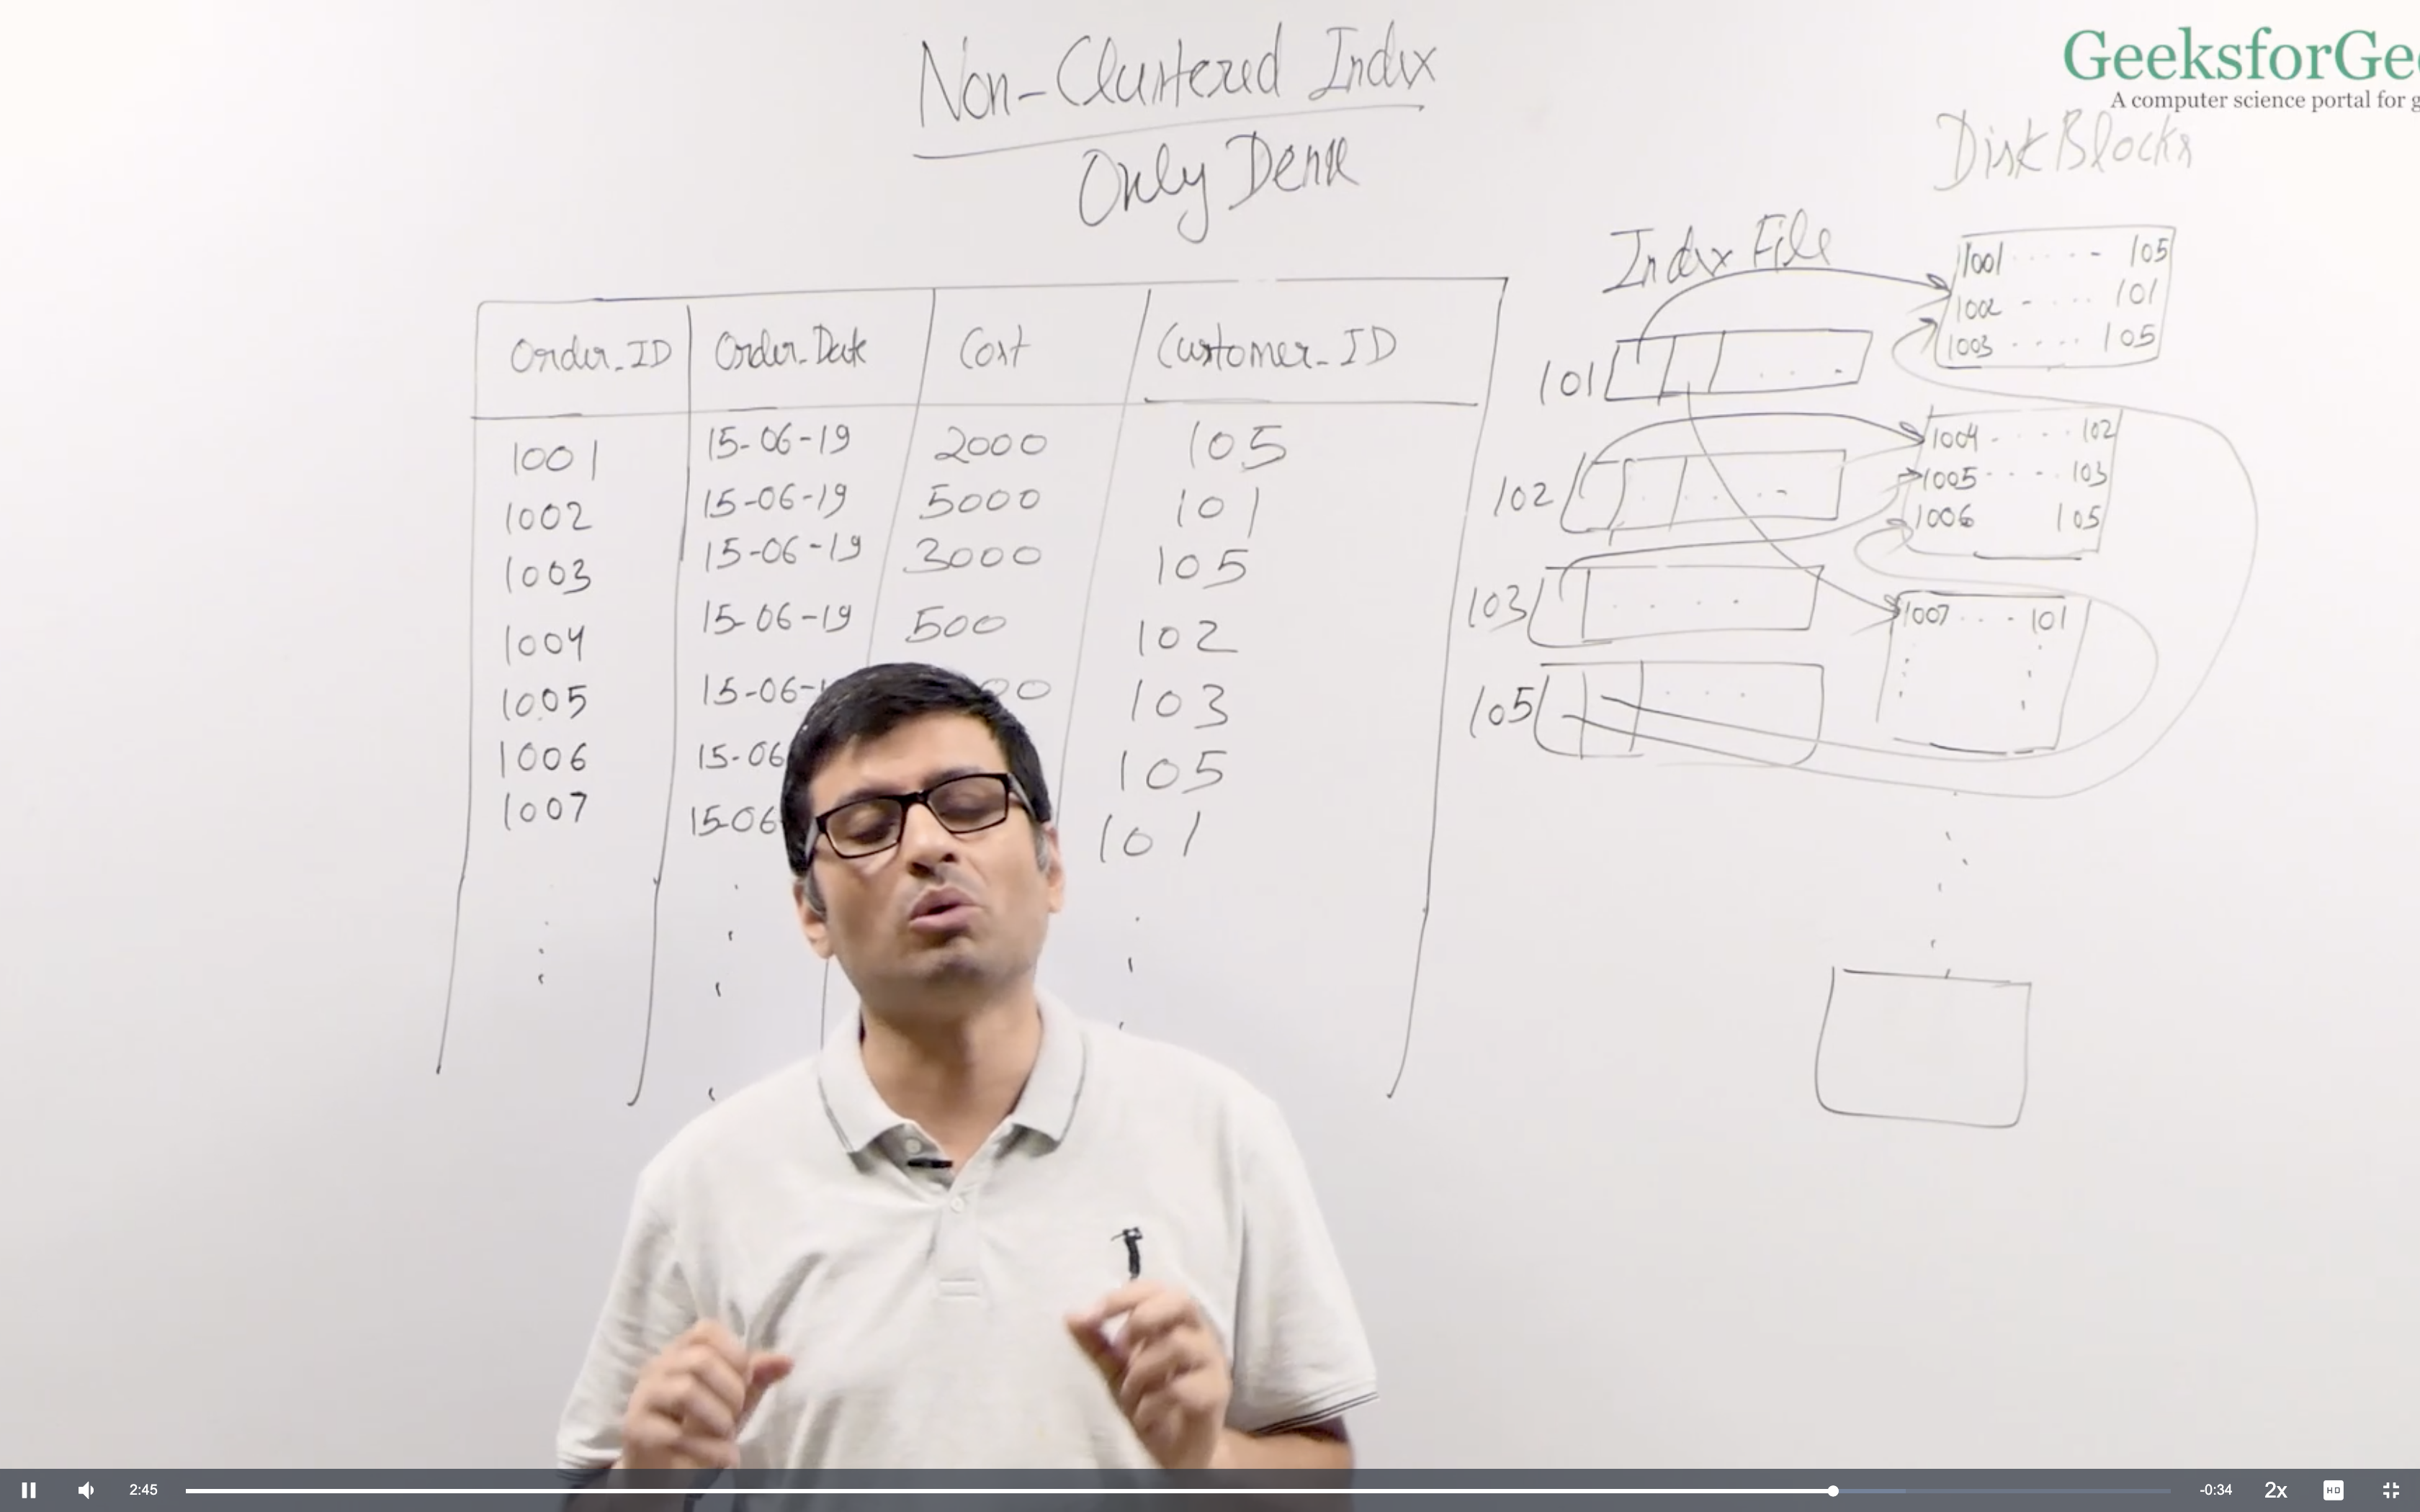 GeeksforGee
A computer science portal for g
Non-Clustered Index
Only Dense
Disk Blocks
Index File
Order_ID Order_Date Cost Customer_ID
1001 15-06-19 2000 105
1002 15-06-19 5000 101
1003 15-06-19 3000 105
1004 15-06-19 500 102
1005 15-06- 00 103
1006 15-06 105
1007 15-06 101
101
102
103
105
1001 ..... - 105
1002 - .... 101
1003 ..... 105
1004 - .... 102
1005 - ... - 103
1006 105
1007 ... - 101
2:45
-0:34
2x
HD